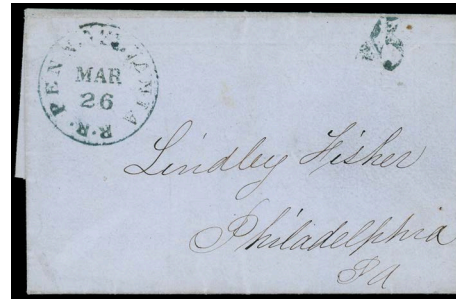 PENNSYLVANIA R.R.
MAR
26
5
Lindley Fisher
Philadelphia
Pa